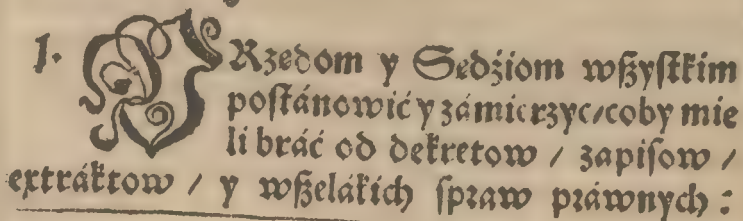 1. URzędom y Sędźiom wſzyſtkim
poſtánowić y zámierzyć / coby mie
li bráć od dekretow / zapiſow /
extráktow / y wſzelákich ſpraw práwnych :